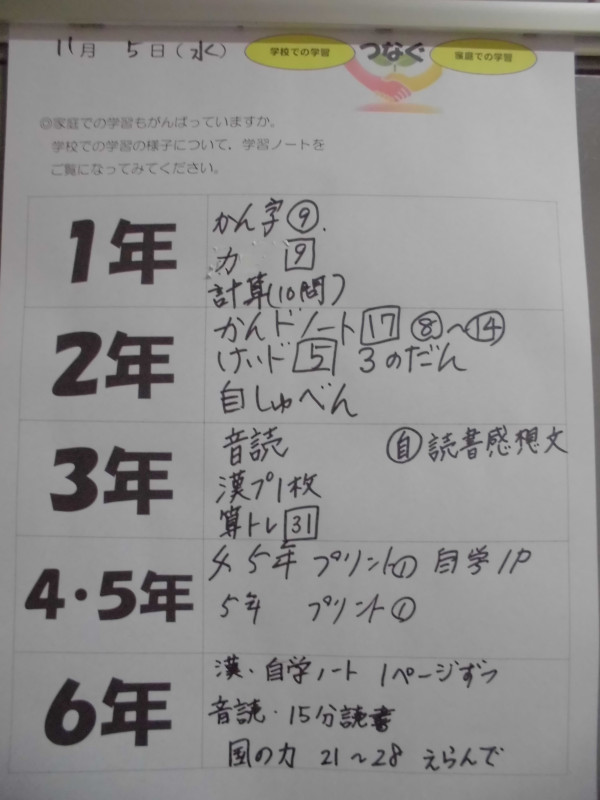 11月 5日(水)
学校での学習 つなぐ 家庭での学習
◎家庭での学習もがんばっていますか。
学校での学習の様子について、学習ノートを
ご覧になってみてください。
1年
かん字⑨.
力 9
計算(10問)
2年
かんドノート 17 ⑧〜⑭
けいド 5 3のだん
自しゅべん
3年
音読 自 読書感想文
漢プ1枚
算トレ 31
4・5年
4、5年 プリント① 自学1P
5年 プリント①
6年
漢・自学ノート 1ページずつ
音読・15分読書
国の力 21〜28 えらんで